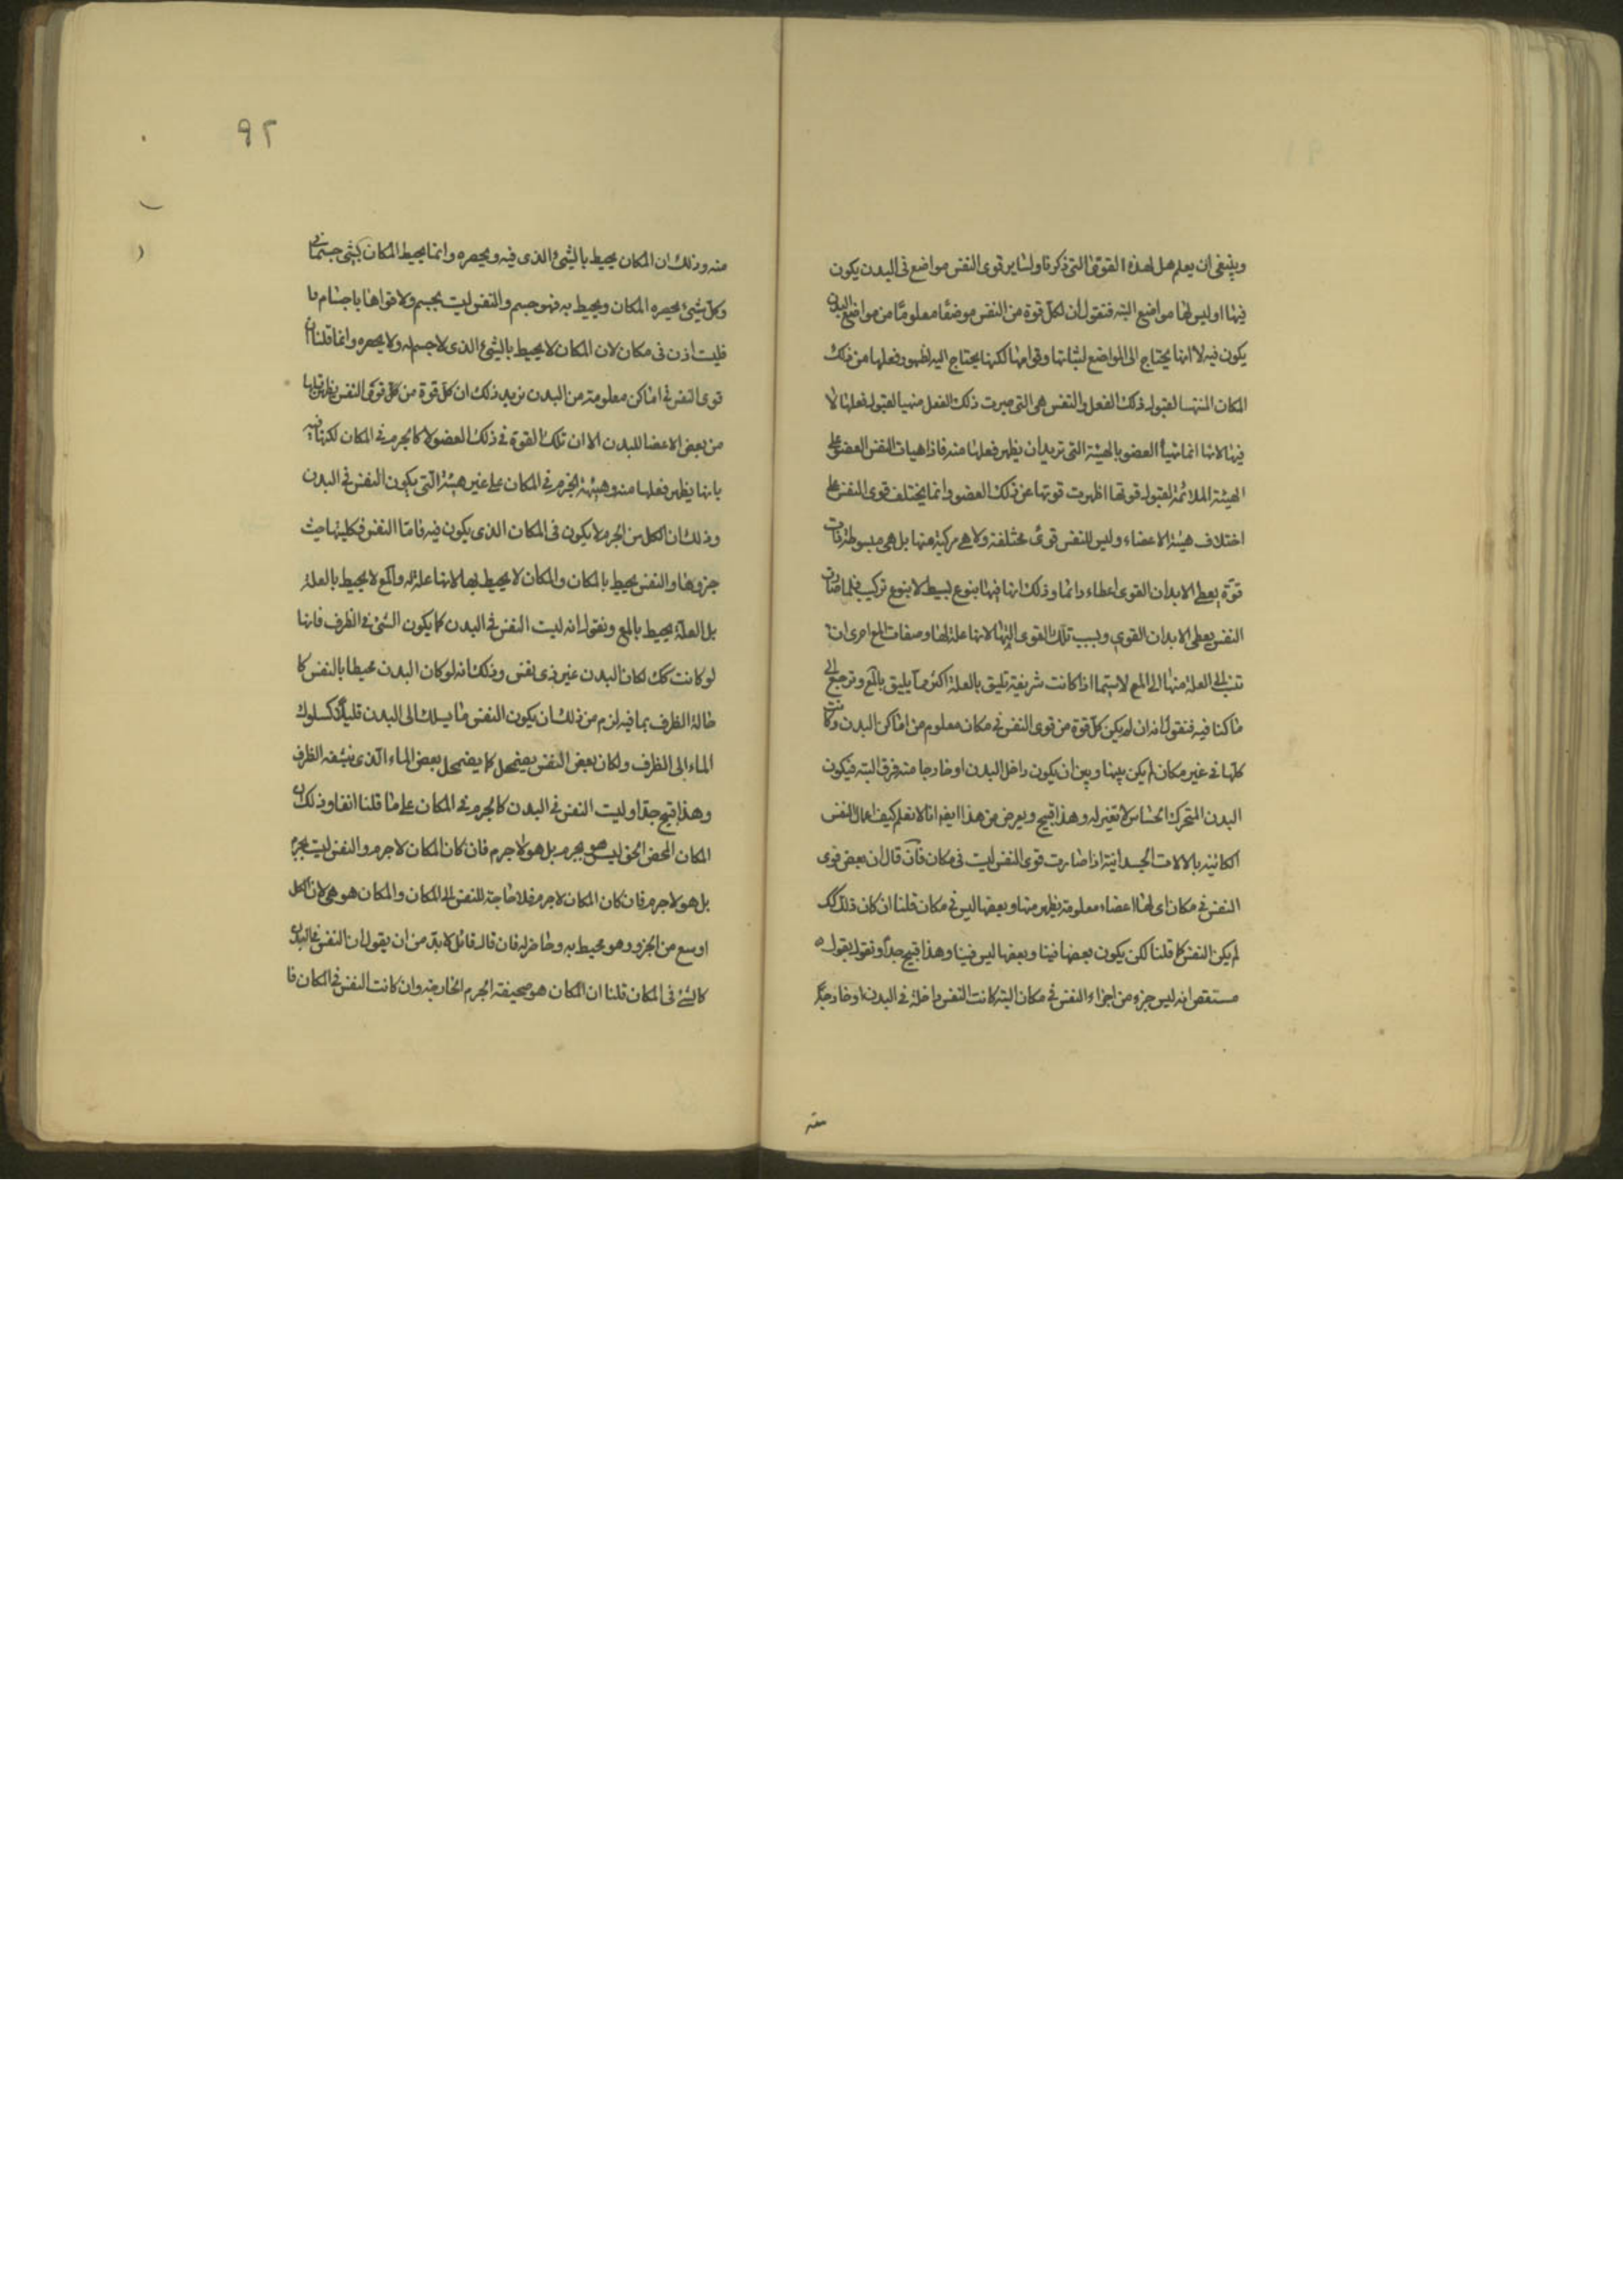 وينبغى ان يعلم هل لهذه القوة التى ذكرنا ولساير قوى النفس مواضع فى البدن يكون
فيها او ليس لها مواضع البته فنقول ان لكل قوة من النفس موضعًا معلومًا من مواضع البدن
يكون فيه لا انها يحتاج الى المواضع لثباتها وقوامها لكنها يحتاج اليه لظهور فعلها من ذلك
المكان المتهيا لقبول ذلك الفعل والنفس هى التى صيرت ذلك الفعل متهيا لقبول فعلها لا
فيها لانها انما تهيأ العضو بالهيئة التى تريد ان يظهر فعلها منه فاذا هيات النفس العضو على
الهيئة الملائمة لقبول قوتها اظهرت قوتها عن ذلك العضو وانما يختلف قوى النفس على
اختلاف هيئة الاعضاء وليس للنفس قوى مختلفة ولا هى مركبة منها بل هى مبسوطة ذات
قوة يعطى الابدان القوى اعطاء دائما وذلك انها فيها بنوع بسيط لا بنوع تركيب فلما صارت
النفس يعطى الابدان القوى وينسب تلك القوى اليها لانها علة لها وصفات المع احرى ان
تنسب الى العلة منها الى المع لاسيما اذا كانت شريفة تليق بالعلة اكثر مما يليق بالمع ونرجع الى
ما كنا فيه فنقول انه ان لم يكن كل قوة من قوى النفس فى مكان معلوم من اماكن البدن وكانت
كلها فى غير مكان لم يكن بينها وبين ان يكون داخل البدن او خارجا منه فرق البته فيكون
البدن المتحرك الحساس لا تغير له وهذا قبيح ويعرض من هذا ايضه انا لا نعلم كيف اعمال النفس
الكائنه بالالات الجسدانية اذا صارت قوى النفس ليست فى مكان فان قال ان بعض قوى
النفس فى مكان اى لها اعضاء معلومة يظهر منها وبعضها ليس فى مكان قلنا ان كان ذلك كك
لم يكن النفس كما قلنا لكن يكون بعضها فينا وبعضها ليس فينا وهذا قبيح جدا ونقول بقول
مستقص انه ليس جزء من اجزاء النفس فى مكان البته كانت النفس داخلة فى البدن او خارجة
منه
٩٢
منه وذلك ان المكان يحيط بالشئ الذى فيه ويحصره وانما يحيط المكان بشئ جسمانى
وكل شئ يحصره المكان ويحيط به فهو جسم والنفس ليت بجسم ولا قواها باجسام
فليت اذن فى مكان لان المكان لا يحيط بالشئ الذى لا جسم له ولا يحصره وانما قلنا ان
قوى النفس فى اماكن معلومة من البدن نريد ذلك ان كل قوة من كل قوى النفس يظهر فعلها
من بعض الاعضا للبدن الا ان تلك القوة فى ذلك العضو لا كالجرم فى المكان لكنها فيه
بانها يظهر فعلها منه وهيئة الجرم فى المكان على غير هيئة التى يكون النفس فى البدن
وذلك ان الكل من الجرم لا يكون فى المكان الذى يكون فيه فاما النفس فكليتها حيث
جزوها والنفس يحيط بالمكان والمكان لا يحيط بها لانها علة له والمع لا يحيط بالعلة
بل العلة يحيط بالمع ونقول انه ليت النفس فى البدن كما يكون الشئ فى الظرف فانها
لو كانت كك لكان البدن غير ذى نفس وذلك انه لو كان البدن محيطا بالنفس كا
حالة الظرف بما فيه لزم من ذلك ان يكون النفس ما يسلك الى البدن قليلا كسلوك
الماء الى الظرف ولكان بعض النفس يضمحل كما يضمحل بعض الماء الذى ينشفه الظرف
وهذا قبيح جدا وليت النفس فى البدن كالجرم فى المكان على ما قلنا انفا وذلك ان
المكان المحض الحق ليس هو بجرم بل هو لا جرم فان كان المكان لا جرم والنفس ليت بجرم
بل هو لا جرم فان كان المكان لا جرم فلا حاجة للنفس الى المكان والمكان هو هى لان الكل
اوسع من الجزو وهو محيط به وحاصر له فان قال قائل لا بد من ان يقول ان النفس فى البدن
كالشئ فى المكان قلنا ان المكان هو صحيفة الجرم الخارجة وان كانت النفس فى المكان فا